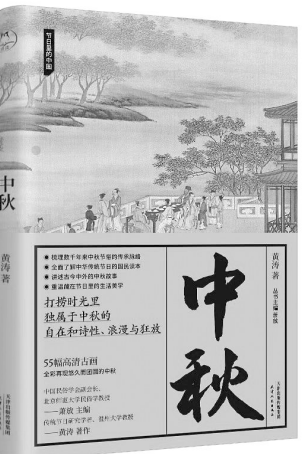 节日里的中国
中秋
黄涛 著
● 梳理数千年来中秋节俗的传承脉络
● 全面了解中华传统节日的国民读本
● 讲述古今中外的中秋故事
● 重温藏在节日里的生活美学
打捞时光里
独属于中秋的
自在和诗性、浪漫与狂放
55幅高清古画
全彩再现悠久而团圆的中秋
中国民俗学会副会长、
北京师范大学民俗学教授
——萧放 主编
传统节日研究学者、温州大学教授
——黄涛 著作
黄涛 著
丛书主编 萧放
中秋
天津出版传媒集团